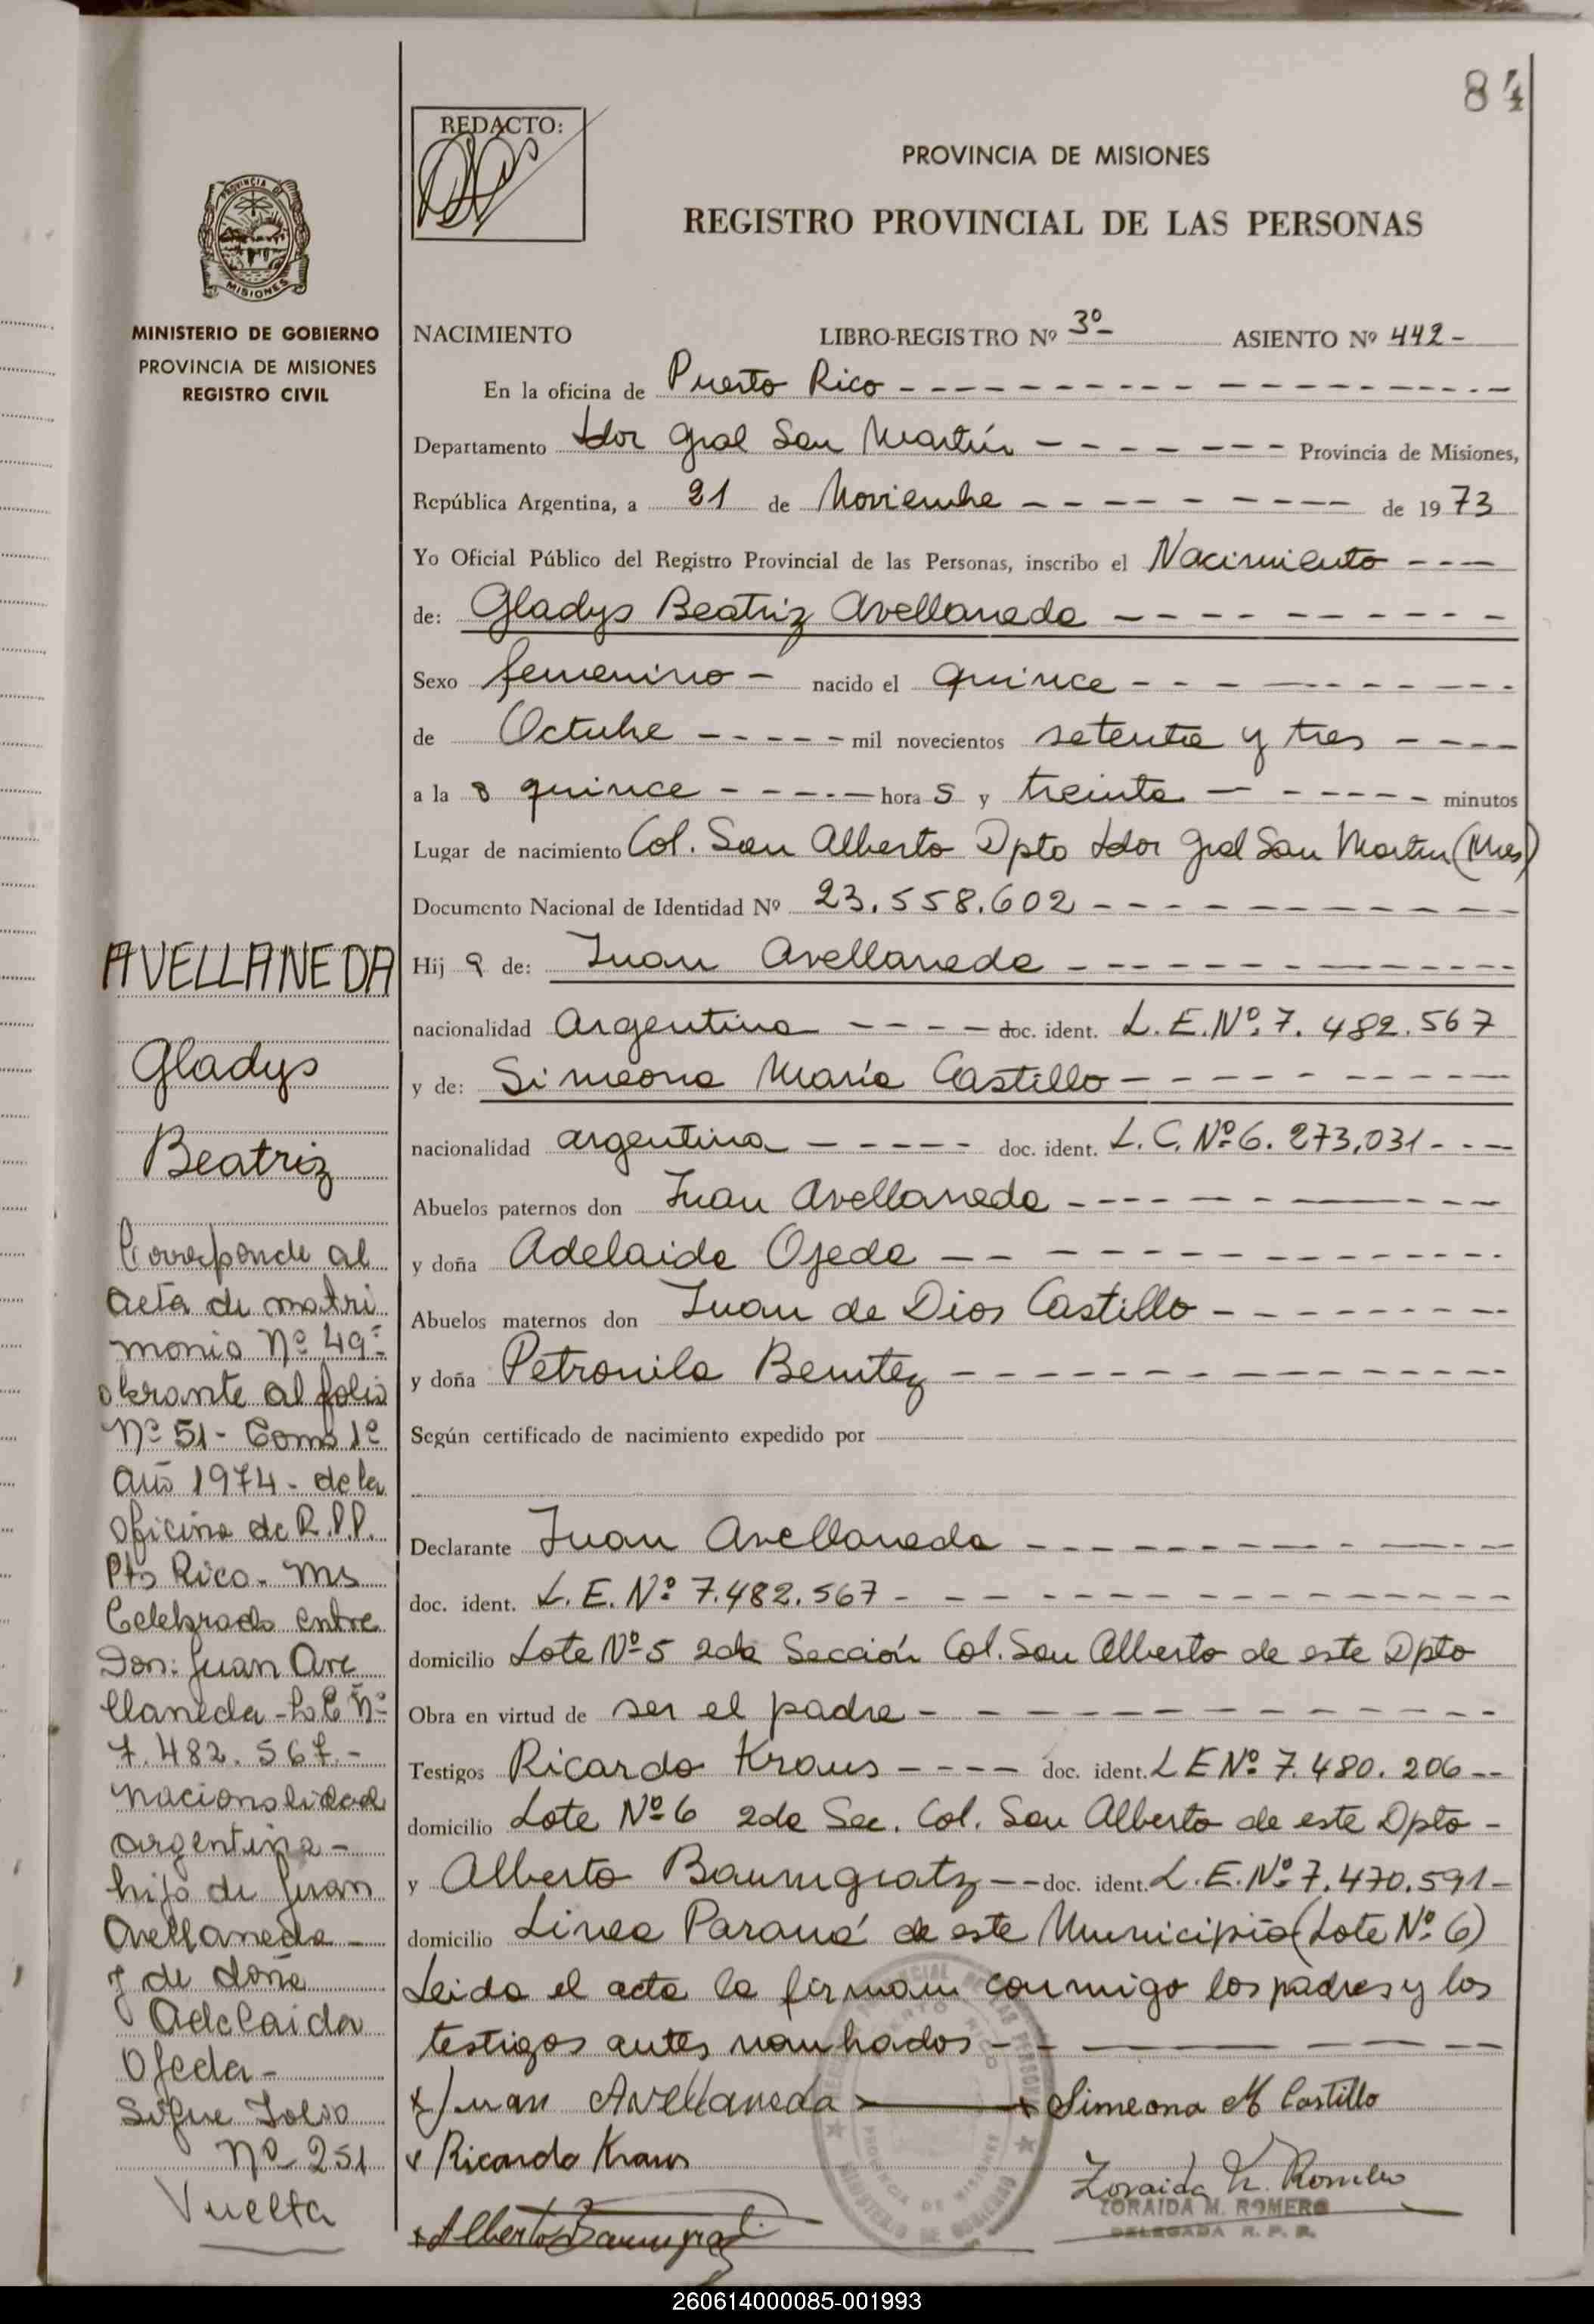 84
REDACTO:
PROVINCIA DE MISIONES
REGISTRO PROVINCIAL DE LAS PERSONAS
PROVINCIA DE
MISIONES
MINISTERIO DE GOBIERNO
PROVINCIA DE MISIONES
REGISTRO CIVIL
AVELLANEDA
Gladys
Beatriz
Corresponde al
acta de matri
monio Nº 49-
obrante al folio
Nº 51 - Tomo 1º
Año 1974 - de la
Oficina de R.P.P.
Pto Rico - Ms
Celebrado entre
Don: Juan Ave
llaneda - L.E Nº
7.482.567.-
nacionalidad
argentina -
hijo de Juan
Avellaneda -
y de doña
Adelaida
Ojeda -
Sigue Folio
Nº 251
Vuelta
NACIMIENTO LIBRO-REGISTRO Nº 3º- ASIENTO Nº 442-
En la oficina de Puerto Rico
Departamento Ldor Gral San Martín Provincia de Misiones,
República Argentina, a 21 de Noviembre de 1973
Yo Oficial Público del Registro Provincial de las Personas, inscribo el Nacimiento
de: Gladys Beatriz Avellaneda
Sexo femenino - nacido el quince
de Octubre mil novecientos setenta y tres
a la s quince hora s y treinta minutos
Lugar de nacimiento Col. San Alberto Dpto Ldor Gral San Martin (Mnes)
Documento Nacional de Identidad Nº 23.558.602
Hij a de: Juan Avellaneda
nacionalidad Argentina doc. ident. L.E.Nº.7.482.567
y de: Simeona María Castillo
nacionalidad argentina doc. ident. L.C.Nº6.273.031
Abuelos paternos don Juan Avellaneda
y doña Adelaida Ojeda
Abuelos maternos don Juan de Dios Castillo
y doña Petronila Benitez
Según certificado de nacimiento expedido por
Declarante Juan Avellaneda
doc. ident. L.E.Nº 7.482.567
domicilio Lote Nº5 2da Sección Col. San Alberto de este Dpto
Obra en virtud de ser el padre
Testigos Ricardo Kraus doc. ident. L E Nº 7.480.206
domicilio Lote Nº6 2da Sec. Col. San Alberto de este Dpto
y Alberto Baumgratz doc. ident. L.E.Nº7.470.591
domicilio Linea Paraná de este Municipio (Lote Nº 6)
Leida el acta la firman conmigo los padres y los
testigos antes nombrados
x Juan Avellaneda x Simeona M Castillo
x Ricardo Kraus
Zoraida M. Romero
ZORAIDA M. ROMERO
DELEGADA R. P. P.
PUERTO RICO
PROVINCIA DE MISIONES
MINISTERIO DE GOBIERNO
260614000085-001993